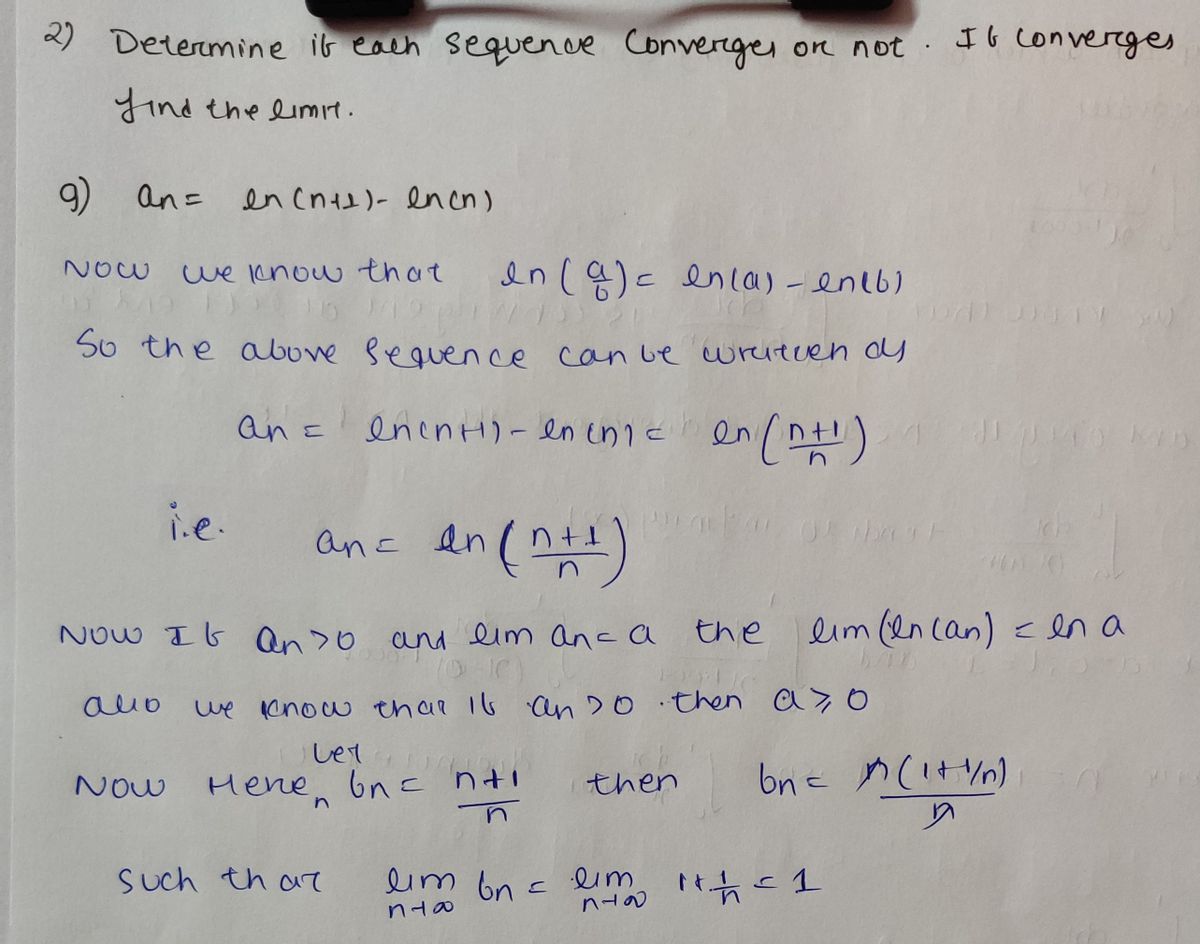 2) Determine if each sequence converges or not. If converges
find the limit.
g) an = ln(n+1) - ln(n)
Now we know that ln(a/b) = ln(a) - ln(b)
So the above sequence can be written as
an = ln(n+1) - ln(n) = ln(n+1/n)
i.e. an = ln(n+1/n)
Now If an>0 and lim an = a the lim(ln(an) = ln a
also we know that if an>0. then a≥0
Now Here, Let bn = n+1/n then bn = n(1+1/n)/n
Such that lim n→∞ bn = lim n→∞ 1+1/n = 1